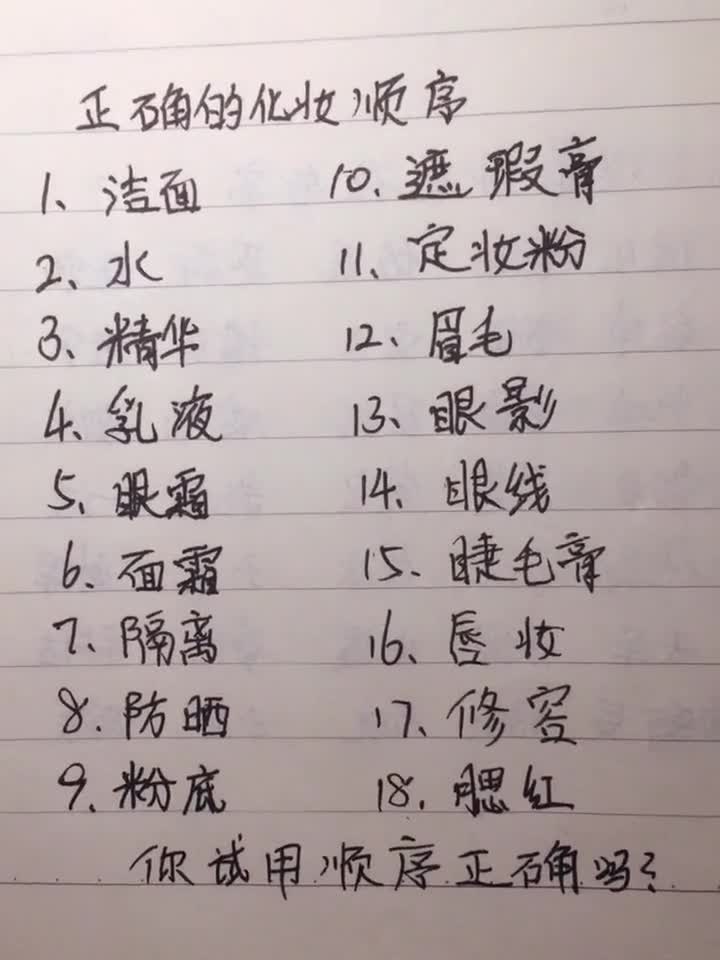 正确的化妆顺序
1、洁面
2、水
3、精华
4、乳液
5、眼霜
6、面霜
7、隔离
8.防晒
9.粉底
10、遮瑕膏
11、定妆粉
12、眉毛
13、眼影
14、眼线
15、睫毛膏
16、唇妆
17、修容
18.腮红
你试用顺序正确吗?